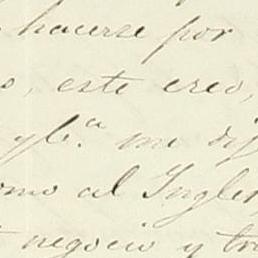 hacerse por
este creo,
yb.ª me dij
omo al Ingles
negocio y tr